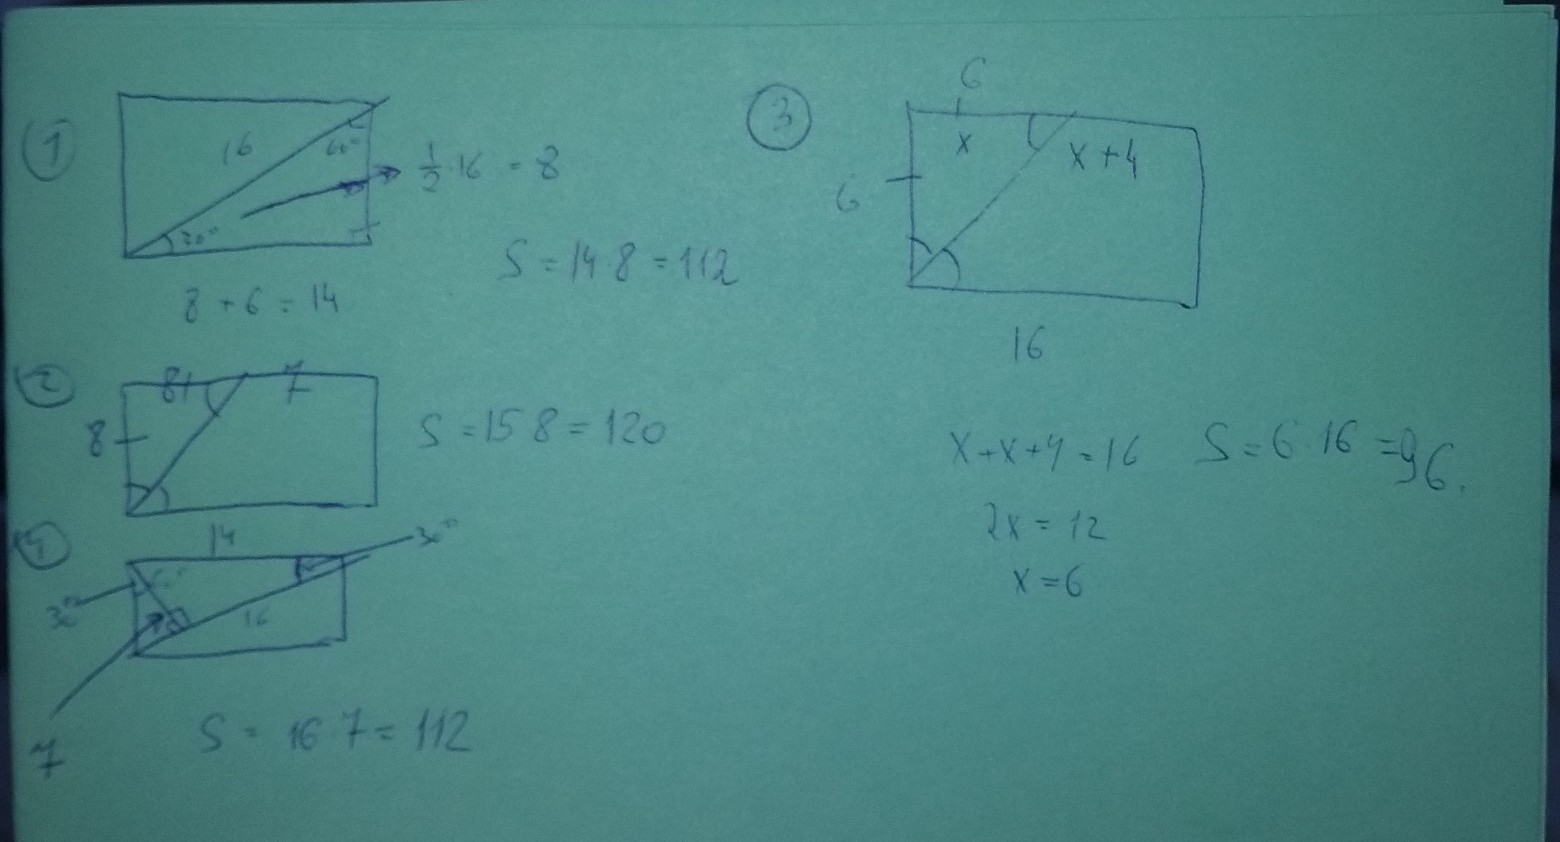 1
16
60°
30°
1/2 · 16 = 8
S = 14 · 8 = 112
8 + 6 = 14
2
8
8
7
S = 15 8 = 120
3
6
x
x + 4
6
16
x + x + 4 = 16
S = 6 · 16 = 96.
2x = 12
x = 6
4
14
30°
30°
16
7
S = 16 7 = 112